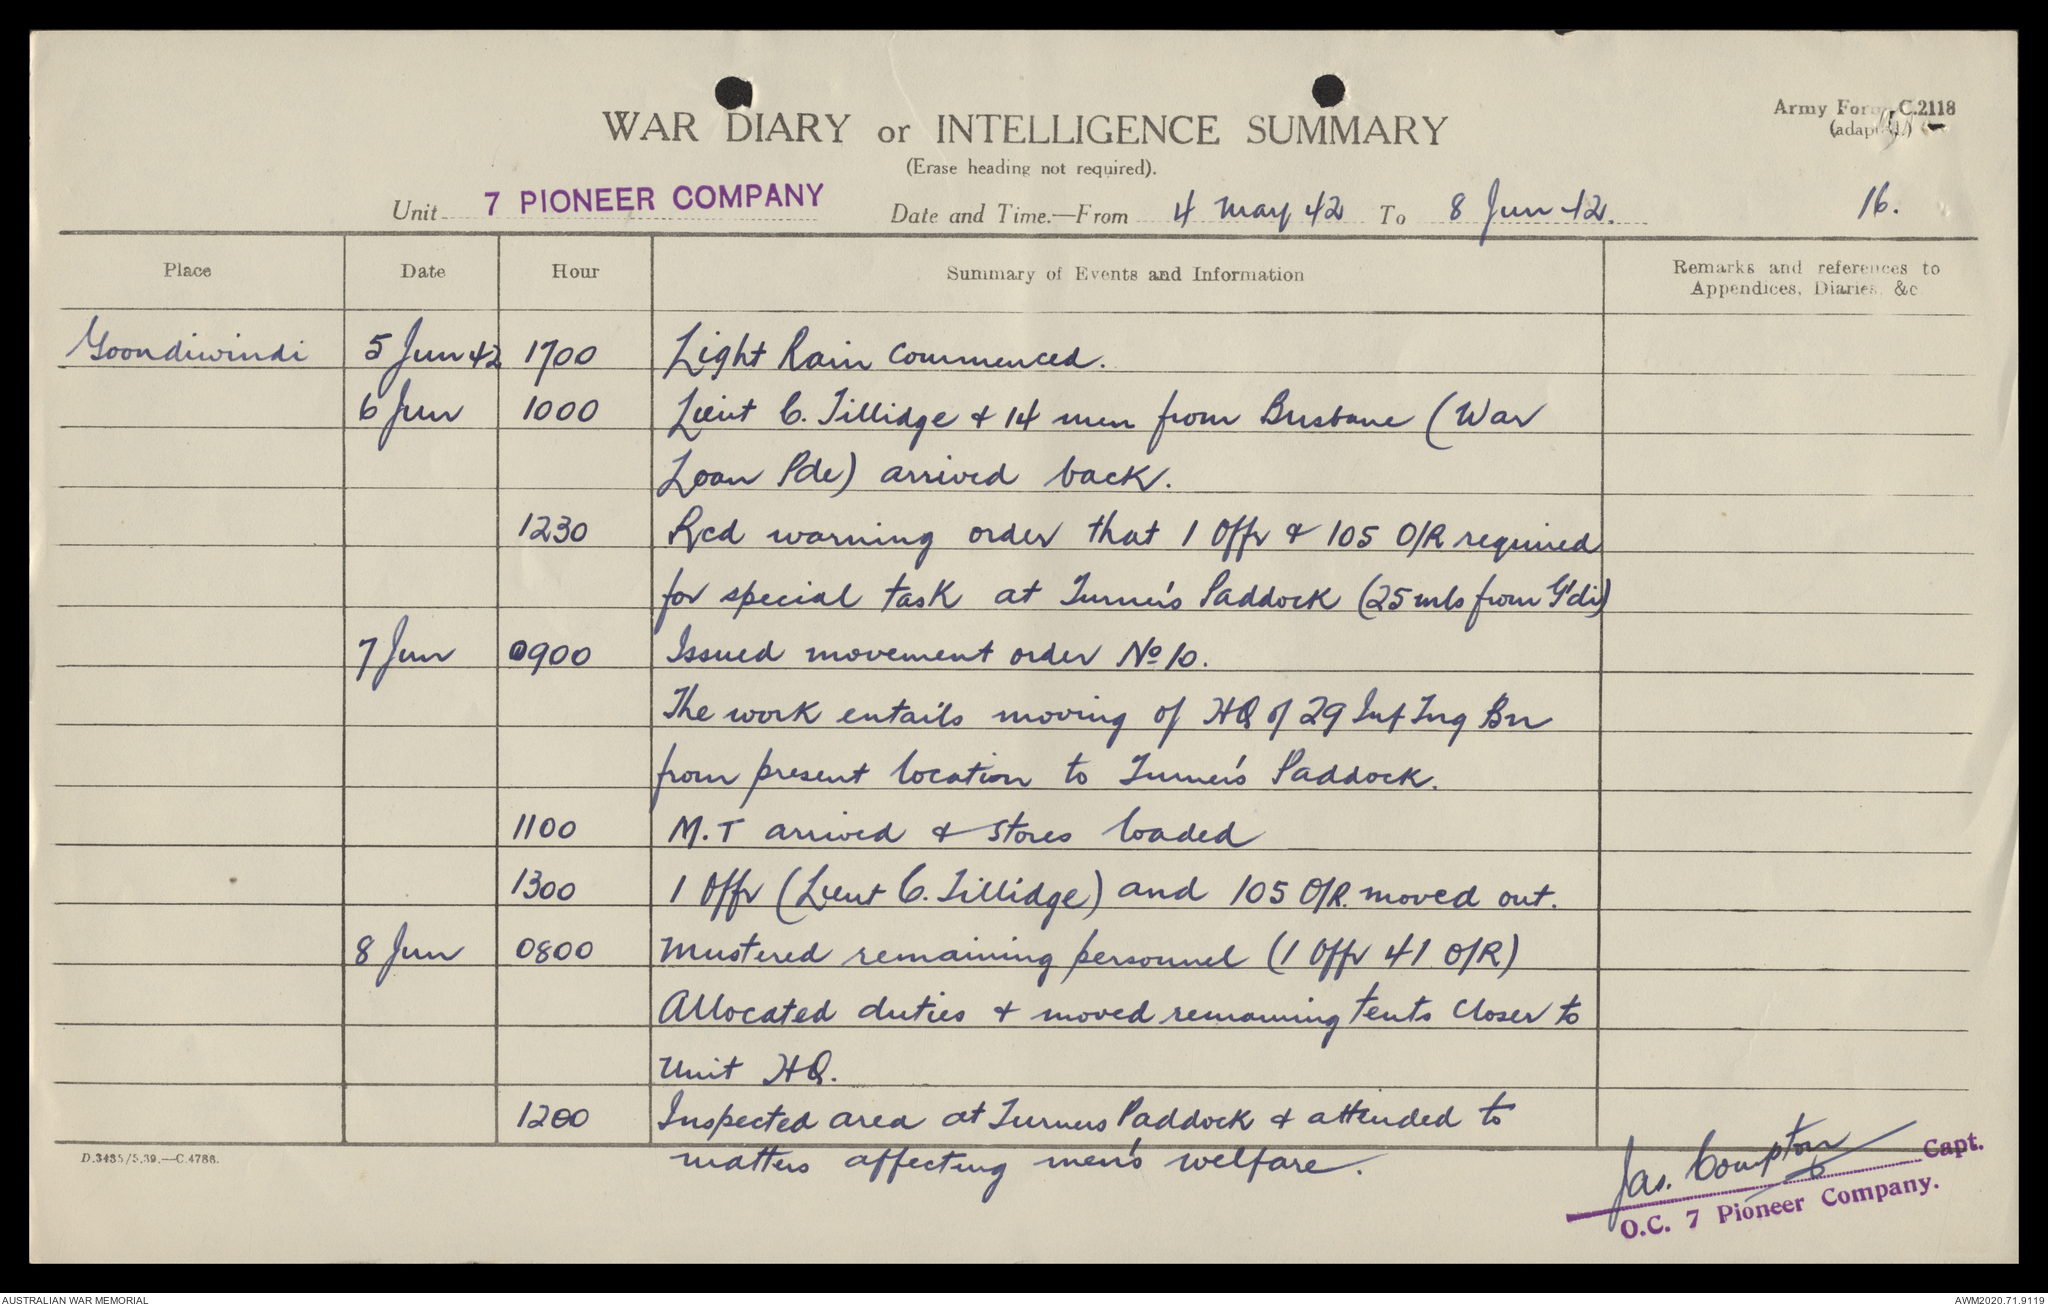 WAR DIARY or INTELLIGENCE SUMMARY
Army Form C.2118
(adapted.)
(Erase heading not required).
Unit 7 PIONEER COMPANY Date and Time.—From 4 May 42 To 8 Jun 42. 16.
Place Date Hour Summary of Events and Information Remarks and references to
Appendices, Diaries &c
Goondiwindi 5 Jun 42 1700 Light Rain Commenced.
6 Jun 1000 Lieut C. Tillidge & 14 men from Brisbane (War
Loan Pde) arrived back.
1230 Rcd warning order that 1 Offr & 105 O/R required
for special task at Turner's Paddock (25 mls from G'di)
7 Jun 0900 Issued movement order No 10.
The work entails moving of HQ of 29 Inf Tng Bn
from present location to Turner's Paddock.
1100 M.T arrived & stores loaded
1300 1 Offr (Lieut C. Tillidge) and 105 O/R. moved out.
8 Jun 0800 Mustered remaining personnel (1 Offr 41 O/R)
Allocated duties & moved remaining tents closer to
Unit HQ.
1200 Inspected area at Turners Paddock & attended to
matters affecting men's welfare.
D.3435/5.39.—C.4788.
Jas. Compton Capt.
O.C. 7 Pioneer Company.
AUSTRALIAN WAR MEMORIAL AWM2020.71.9119